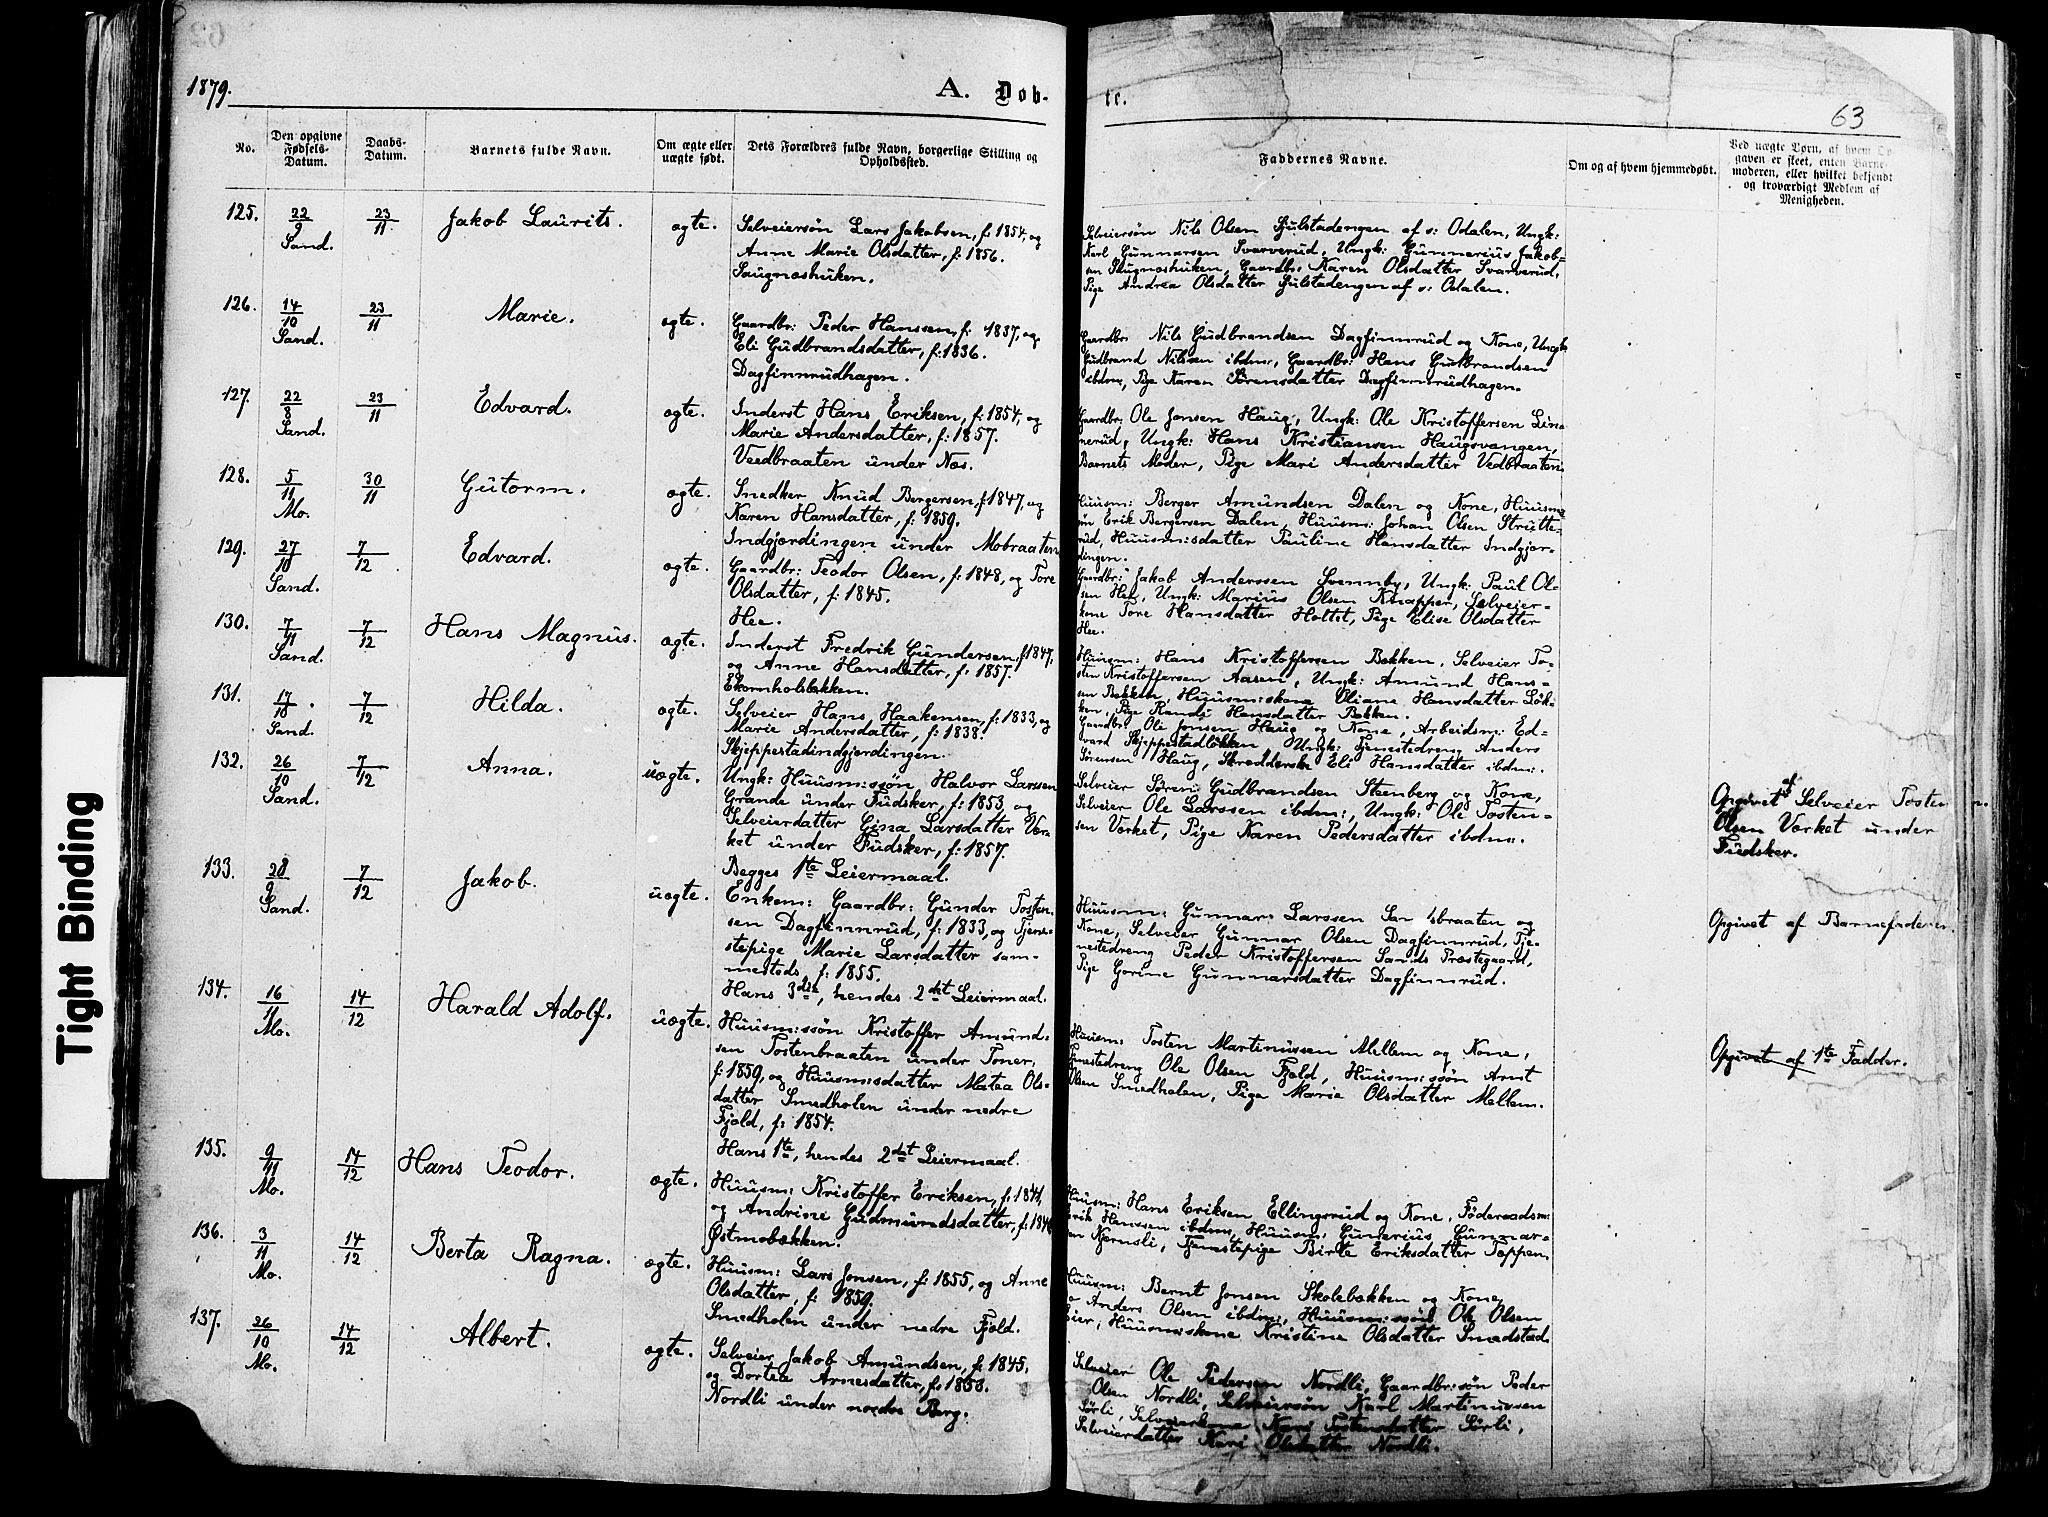 1879.
A. Døb-
te.
63
No.
Den opgivne Fødsels-Datum.
Daabs-Datum.
Barnets fulde Navn.
Om ægte eller uægte født.
Dets Forældres fulde Navn, borgerlige Stilling og Opholdssted.
Faddernes Navne.
Om og af hvem hjemmedøbt.
Ved uægte Børn, af hvem Op-
gaven er skeet, enten Barne-
moderen, eller hvilket bekjendt
og troværdigt Medlem af
Menigheden.
125. 22/9 Sand. 23/11 Jakob Laurits. ægte.
Selveiersøn Lars Jakobsen, f: 1854, og
Anne Marie Olsdatter, f: 1856.
Saugnæshuken.
Selveiersøn Nils Olsen Gulstadengen af s: Odalen, Ungk:
Karl Gunnarsen Svarverud, Ungk: Gunnerius Jakob-
sen Saugnæshuken, Gaardbr: Karen Olsdatter Svarverud,
Pige Andrea Olsdatter Gulstadengen af s: Odalen.
126. 14/10 Sand. 23/11 Marie. ægte.
Gaardbr: Peder Hanssen, f: 1837, og
Eli Gudbrandsdatter, f: 1836.
Dagfinnrudhagen.
Gaardbr: Nils Gudbrandsen Dagfinnrud og Kone, Ungk:
Gudbrand Nilssen ibdm:, Gaardbr: Hans Gudbrandsen
ibdm, Pige Karen Sørensdatter Dagfinnrudhagen.
127. 22/8 Sand. 23/11 Edvard. ægte.
Inderst Hans Eriksen, f: 1854, og
Marie Andersdatter, f: 1857.
Veedbraaten under Næs.
Gaardbr: Ole Jonsen Haug, Ungk: Ole Kristoffersen Lin-
nerud, Ungk: Hans Kristiansen Haugsvangen,
Barnets Moder, Pige Mari Andersdatter Vedbraaten.
128. 5/11 Mo. 30/11 Gutorm. ægte.
Snedker Knud Bergersen, f: 1847, og
Karen Hansdatter, f: 1859.
Indgjærdingen under Mobraaten
Huusm: Berger Amundsen Dalen og Kone, Huusm:
søn Erik Bergersen Dalen, Huusm: Johan Olsen Strutte-
rud, Huusm:sdatter Pauline Hansdatter Indgjær-
dingen.
129. 27/10 Sand. 7/12 Edvard. ægte.
Gaardbr: Teodor Olsen, f: 1848, og Tore
Olsdatter, f: 1845.
Hee.
Gaardbr: Jakob Anderssen Svennby, Ungk: Paul Ol-
sen Hee, Ungk: Marius Olsen Knapper, Selveier-
kone Tore Hansdatter Holtet, Pige Elise Olsdatter
Hee.
130. 7/11 Sand. 7/12 Hans Magnus. ægte.
Inderst Fredrik Gundersen, f: 1847,
og Anne Hansdatter, f: 1857.
Ekornholsbækken.
Huusm: Hans Kristoffersen Bækken, Selveier To-
sten Kristoffersen Aasen, Ungk: Amund Hans-
sen Bækken, Huusm:skone Oliane Hansdatter Løk-
ken, Pige Randi Hansdatter Bækken.
131. 17/10 Sand. 7/12 Hilda. ægte.
Selveier Hans Haakensen, f: 1833, og
Marie Andersdatter, f: 1838.
Skjeppestadindgjærdingen.
Gaardbr: Ole Jonsen Haug og Kone, Arbeidsm: Ed-
vard Skjeppestadløkken, Ungk: Tjenestedreng Anders
Sørensen Haug, Skrædderske Eli Hansdatter ibdm:.
132. 26/10 Sand. 7/12 Anna. uægte.
Ungk: Huusm:søn Halvor Larssen
Grande under Tudsker, f: 1853, og
Selveierdatter Gina Larsdatter Vær-
ket under Tudsker, f: 1857.
Begges 1te Leiermaal.
Selveier Søren Gudbrandsen Steenberg og Kone,
Selveier Ole Larssen ibdm:, Ungk: Ole Tosten-
sen Værket, Pige Karen Pedersdatter ibdm:.
Opgivet af Selveier Tosten
Olsen Værket under
Tudsker.
133. 28/9 Sand. 7/12 Jakob. uægte.
Enkem: Gaardbr: Gunder Tosten-
sen Dagfinnrud, f: 1833, og Tjene-
stepige Marie Larsdatter sam-
mesteds, f: 1855.
Hans 3die, hendes 2det Leiermaal.
Huusm: Gunnar Larssen braaten og
Kone, Selveier Gunnar Olsen Dagfinnrud, Tje-
nestedreng Peder Kristoffersen Sands Præstegaard,
Pige Gorine Gunnarsdatter Dagfinnrud.
Opgivet af Barnefaderen.
134. 16/11 Mo. 14/12 Harald Adolf. uægte.
Huusm:søn Kristoffer Amund-
sen Tostenbraaten under Toner,
f: 1859, og Huusm:sdatter Matea Ols-
datter Smedholen under nedre
Fjeld, f: 1854.
Hans 1te, hendes 2det Leiermaal.
Huusm: Tosten Martinussen Mellem og Kone,
Tjenestedreng Ole Olsen Fjeld, Huusm:søn Arnt
Olsen Smedholen, Pige Marie Olsdatter Mellem.
Opgivet af 1te Fadder.
135. 9/11 Mo. 14/12 Hans Teodor. ægte.
Huusm: Kristoffer Eriksen, f: 1841,
og Andrine Gudmundsdatter, f: 184
Østmobækken.
Huusm: Hans Eriksen Ellingsrud og Kone, Føderaadsm:
Erik Hanssen ibdm, Huusm: Gunerius Gunnar-
sen Kjernsli, Tjenestepige Birte Eriksdatter Toppen.
136. 3/11 Mo. 14/12 Berta Ragna. ægte.
Huusm: Lars Jonsen, f: 1855, og Anne
Olsdatter, f: 1859.
Smedholen under nedre Fjeld.
Huusm: Bernt Jonsen Skolebækken og Kone,
Anders Olsen ibdm:, Huusm:søn Ole Olsen
, Huusm:skone Kristine Olsdatter Smedstad.
137. 26/10 Mo. 14/12 Albert. ægte.
Selveier Jakob Amundsen, f: 1845,
og Dortea Arnesdatter, f: 1853.
Nordli under nordre Berg.
Selveier Ole Pedersen Nordli, Gaardbr:søn Peder
Olsen Nordli, Selveiersøn Karl Martinussen
Sørli, Selveierkone Kari Tostensdatter Sørli,
Selveierdatter Kari Olsdatter Nordli.
Tight Binding